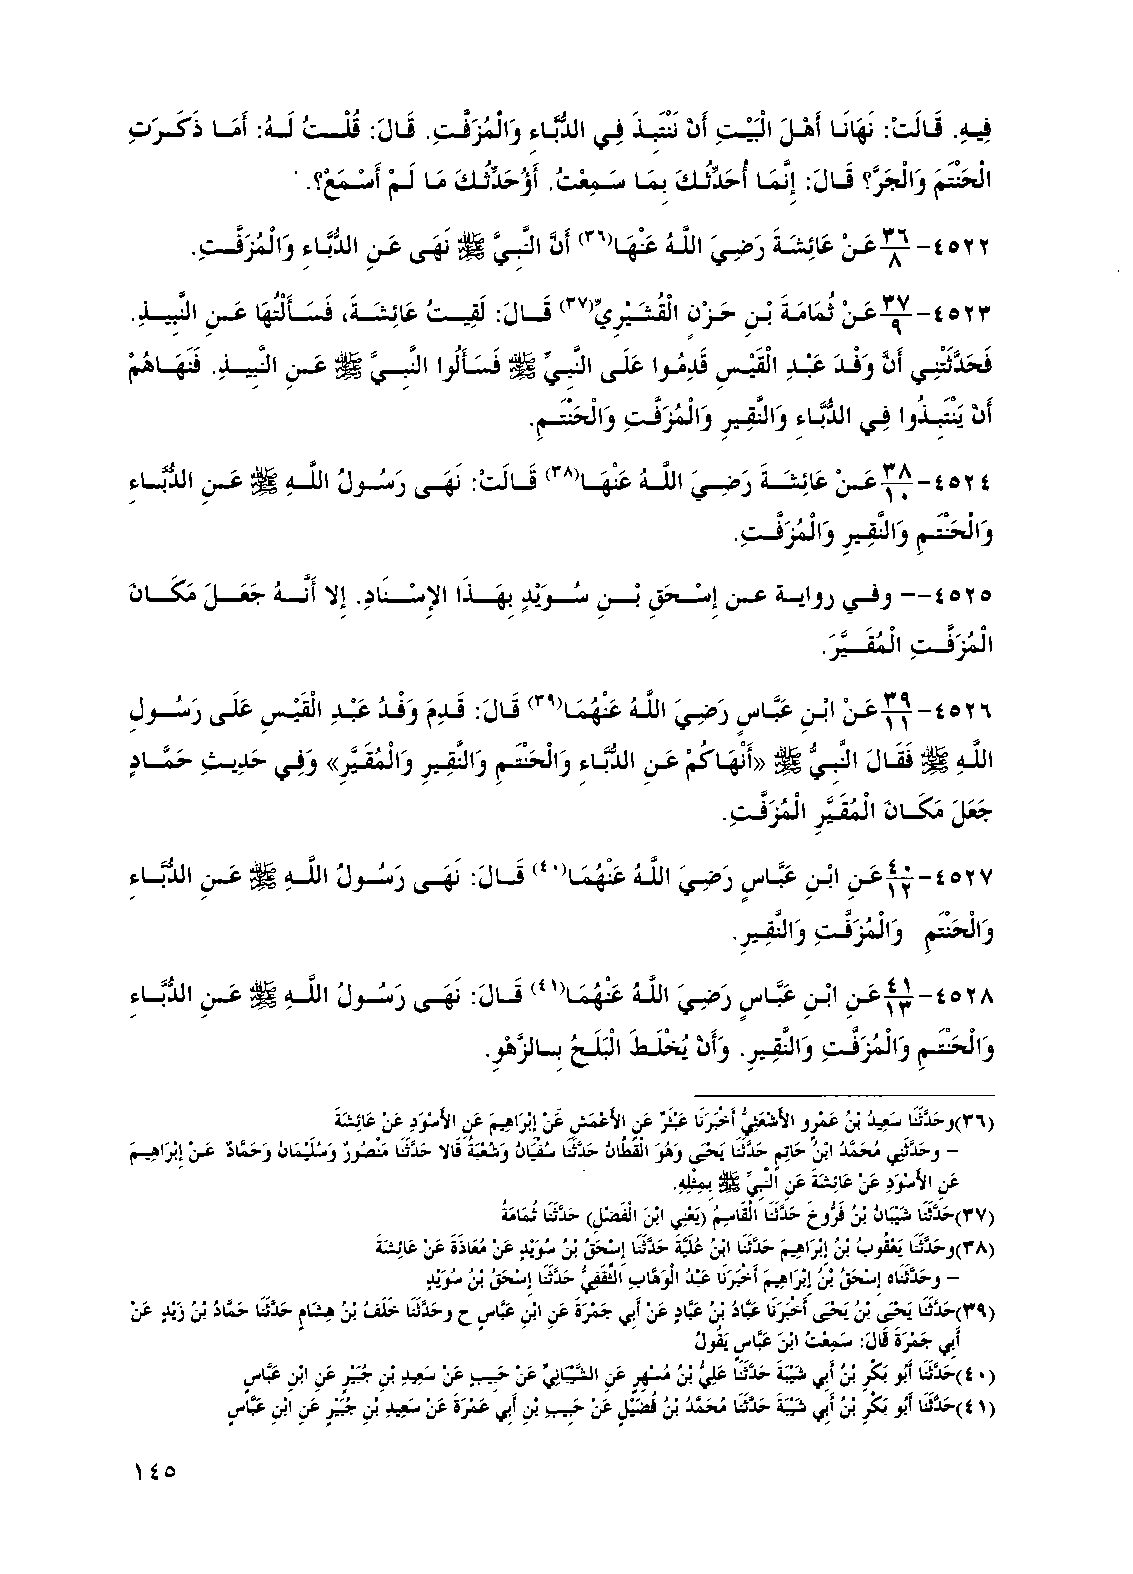 فِيهِ. قَالَتْ: نَهَانَا أَهْلَ الْبَيْتِ أَنْ نَنْتَبِذَ فِي الدُّبَّاءِ وَالْمُزَفَّتِ. قَالَ: قُلْتُ لَهُ: أَمَا ذَكَرَتِ
الْحَنْتَمَ وَالْجَرَّ؟ قَالَ: إِنَّمَا أُحَدِّثُكَ بِمَا سَمِعْتُ. أَؤُحَدِّثُكَ مَا لَمْ أَسْمَعْ؟.
٤٥٢٢- ٣٦/٨ عَنْ عَائِشَةَ رَضِيَ اللَّهُ عَنْهَا(٣٦) أَنَّ النَّبِيَّ ﷺ نَهَى عَنِ الدُّبَّاءِ وَالْمُزَفَّتِ.
٤٥٢٣- ٣٧/٩ عَنْ ثُمَامَةَ بْنِ حَزْنٍ الْقُشَيْرِيِّ(٣٧) قَالَ: لَقِيتُ عَائِشَةَ، فَسَأَلْتُهَا عَنِ النَّبِيذِ.
فَحَدَّثَتْنِي أَنَّ وَفْدَ عَبْدِ الْقَيْسِ قَدِمُوا عَلَى النَّبِيِّ ﷺ فَسَأَلُوا النَّبِيَّ ﷺ عَنِ النَّبِيذِ. فَنَهَاهُمْ
أَنْ يَنْتَبِذُوا فِي الدُّبَّاءِ وَالنَّقِيرِ وَالْمُزَفَّتِ وَالْحَنْتَمِ.
٤٥٢٤- ٣٨/١٠ عَنْ عَائِشَةَ رَضِيَ اللَّهُ عَنْهَا(٣٨) قَالَتْ: نَهَى رَسُولُ اللَّهِ ﷺ عَنِ الدُّبَّاءِ
وَالْحَنْتَمِ وَالنَّقِيرِ وَالْمُزَفَّتِ.
٤٥٢٥-- وفي رواية عن إِسْحَقَ بْنِ سُوَيْدٍ بِهَذَا الإِسْنَادِ. إِلا أَنَّهُ جَعَلَ مَكَانَ
الْمُزَفَّتِ الْمُقَيَّرَ.
٤٥٢٦- ٣٩/١١ عَنْ ابْنِ عَبَّاسٍ رَضِيَ اللَّهُ عَنْهُمَا(٣٩) قَالَ: قَدِمَ وَفْدُ عَبْدِ الْقَيْسِ عَلَى رَسُولِ
اللَّهِ ﷺ فَقَالَ النَّبِيُّ ﷺ «أَنْهَاكُمْ عَنِ الدُّبَّاءِ وَالْحَنْتَمِ وَالنَّقِيرِ وَالْمُقَيَّرِ» وَفِي حَدِيثِ حَمَّادٍ
جَعَلَ مَكَانَ الْمُقَيَّرِ الْمُزَفَّتِ.
٤٥٢٧- ٤٠/١٢ عَنِ ابْنِ عَبَّاسٍ رَضِيَ اللَّهُ عَنْهُمَا(٤٠) قَالَ: نَهَى رَسُولُ اللَّهِ ﷺ عَنِ الدُّبَّاءِ
وَالْحَنْتَمِ وَالْمُزَفَّتِ وَالنَّقِيرِ.
٤٥٢٨- ٤١/١٣ عَنِ ابْنِ عَبَّاسٍ رَضِيَ اللَّهُ عَنْهُمَا(٤١) قَالَ: نَهَى رَسُولُ اللَّهِ ﷺ عَنِ الدُّبَّاءِ
وَالْحَنْتَمِ وَالْمُزَفَّتِ وَالنَّقِيرِ. وَأَنْ يُخْلَطَ الْبَلَحُ بِالزَّهْوِ.
(٣٦)وحَدَّثَنَا سَعِيدُ بْنُ عَمْرٍو الأَشْعَثِيُّ أَخْبَرَنَا عَبْثَرٌ عَنِ الأَعْمَشِ عَنْ إِبْرَاهِيمَ عَنِ الأَسْوَدِ عَنْ عَائِشَةَ
– وحَدَّثَنِي مُحَمَّدُ ابْنُ حَاتِمٍ حَدَّثَنَا يَحْيَى وَهُوَ الْقَطَّانُ حَدَّثَنَا سُفْيَانُ وَشُعْبَةُ قَالا حَدَّثَنَا مَنْصُورٌ وَسُلَيْمَانُ وَحَمَّادٌ عَنْ إِبْرَاهِيمَ
عَنِ الأَسْوَدِ عَنْ عَائِشَةَ عَنِ النَّبِيِّ ﷺ بِمِثْلِهِ.
(٣٧)حَدَّثَنَا شَيْبَانُ بْنُ فَرُّوخَ حَدَّثَنَا الْقَاسِمُ (يَعْنِي ابْنَ الْفَضْلِ) حَدَّثَنَا ثُمَامَةُ
(٣٨)وحَدَّثَنَا يَعْقُوبُ بْنُ إِبْرَاهِيمَ حَدَّثَنَا ابْنُ عُلَيَّةَ حَدَّثَنَا إِسْحَقُ بْنُ سُوَيْدٍ عَنْ مُعَاذَةَ عَنْ عَائِشَةَ
– وحَدَّثَنَاه إِسْحَقُ بْنُ إِبْرَاهِيمَ أَخْبَرَنَا عَبْدُ الْوَهَّابِ الثَّقَفِيُّ حَدَّثَنَا إِسْحَقُ بْنُ سُوَيْدٍ
(٣٩)حَدَّثَنَا يَحْيَى بْنُ يَحْيَى أَخْبَرَنَا عَبَّادُ بْنُ عَبَّادٍ عَنْ أَبِي جَمْرَةَ عَنِ ابْنِ عَبَّاسٍ ح وحَدَّثَنَا خَلَفُ بْنُ هِشَامٍ حَدَّثَنَا حَمَّادُ بْنُ زَيْدٍ عَنْ
أَبِي جَمْرَةَ قَالَ: سَمِعْتُ ابْنَ عَبَّاسٍ يَقُولُ
(٤٠)حَدَّثَنَا أَبُو بَكْرِ بْنُ أَبِي شَيْبَةَ حَدَّثَنَا عَلِيُّ بْنُ مُسْهِرٍ عَنِ الشَّيْبَانِيِّ عَنْ حَبِيبٍ عَنْ سَعِيدِ بْنِ جُبَيْرٍ عَنِ ابْنِ عَبَّاسٍ
(٤١)حَدَّثَنَا أَبُو بَكْرِ بْنُ أَبِي شَيْبَةَ حَدَّثَنَا مُحَمَّدُ بْنُ فُضَيْلٍ عَنْ حَبِيبِ بْنِ أَبِي عَمْرَةَ عَنْ سَعِيدِ بْنِ جُبَيْرٍ عَنِ ابْنِ عَبَّاسٍ
١٤٥